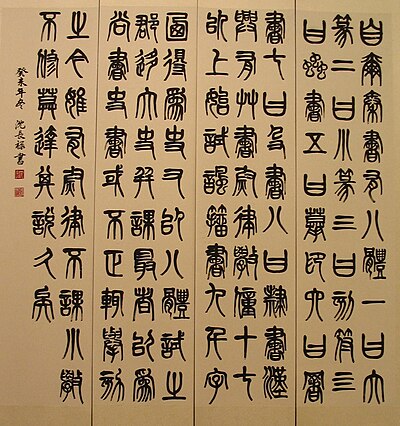 自爾秦書有八體一曰大
篆二曰小篆三曰刻符亖
曰蟲書五曰摹印六曰署
書七曰殳書八曰隸書漢
興有艸書尉律學僮十七
以上始試諷籒書九千字
迺得為史又以八體試之
郡移大史并課最者以為
尚書史書或不正輒舉劾
之今雖有尉律不課小學
不修莫達其說久矣
癸未年冬 沈長 書